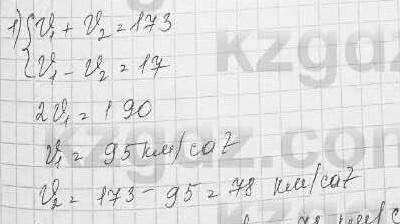 1) { v₁ + v₂ = 173
v₁ - v₂ = 17
2v₁ = 190
v₁ = 95 км/сағ
v₂ = 173 - 95 = 78 км/сағ
kzgaz.com